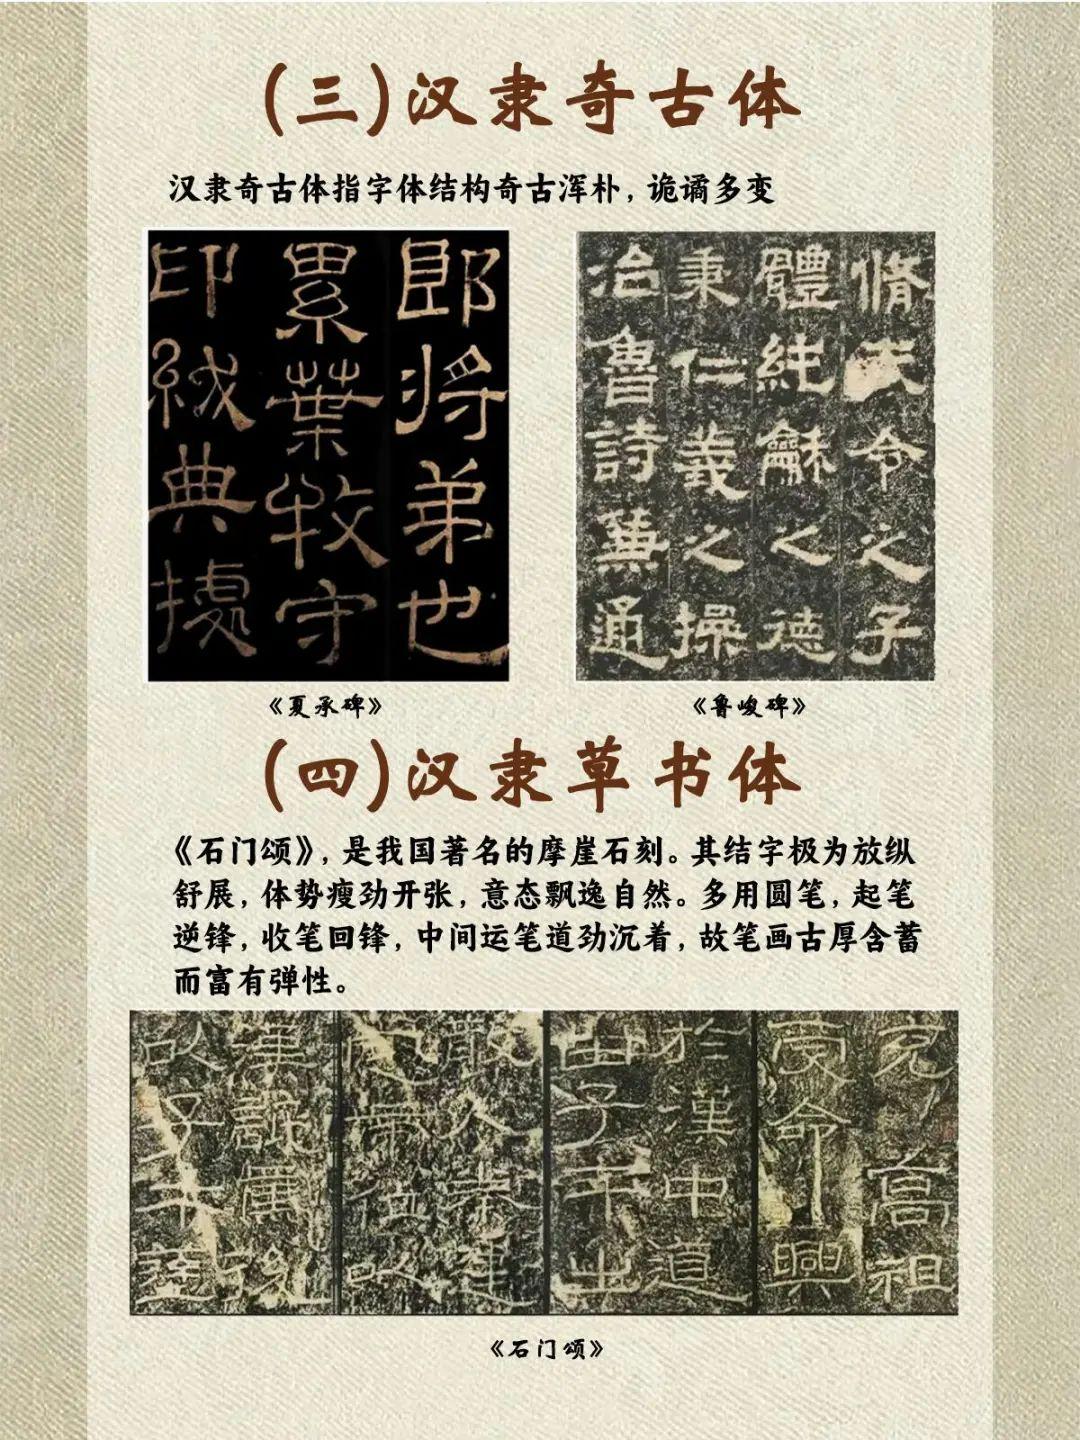 (三)汉隶奇古体
汉隶奇古体指字体结构奇古浑朴，诡谲多变
郎将弟也
累葉牧守
印紱典據
脩天令之子
體純龢之德
秉仁義之操
治魯詩兼通
《夏承碑》
《鲁峻碑》
(四)汉隶草书体
《石门颂》，是我国著名的摩崖石刻。其结字极为放纵
舒展，体势瘦劲开张，意态飘逸自然。多用圆笔，起笔
逆锋，收笔回锋，中间运笔道劲沉着，故笔画古厚含蓄
而富有弹性。
高祖
受命興
於漢中道
由子午出
散入秦建
定帝位以
漢詆焉
《石门颂》